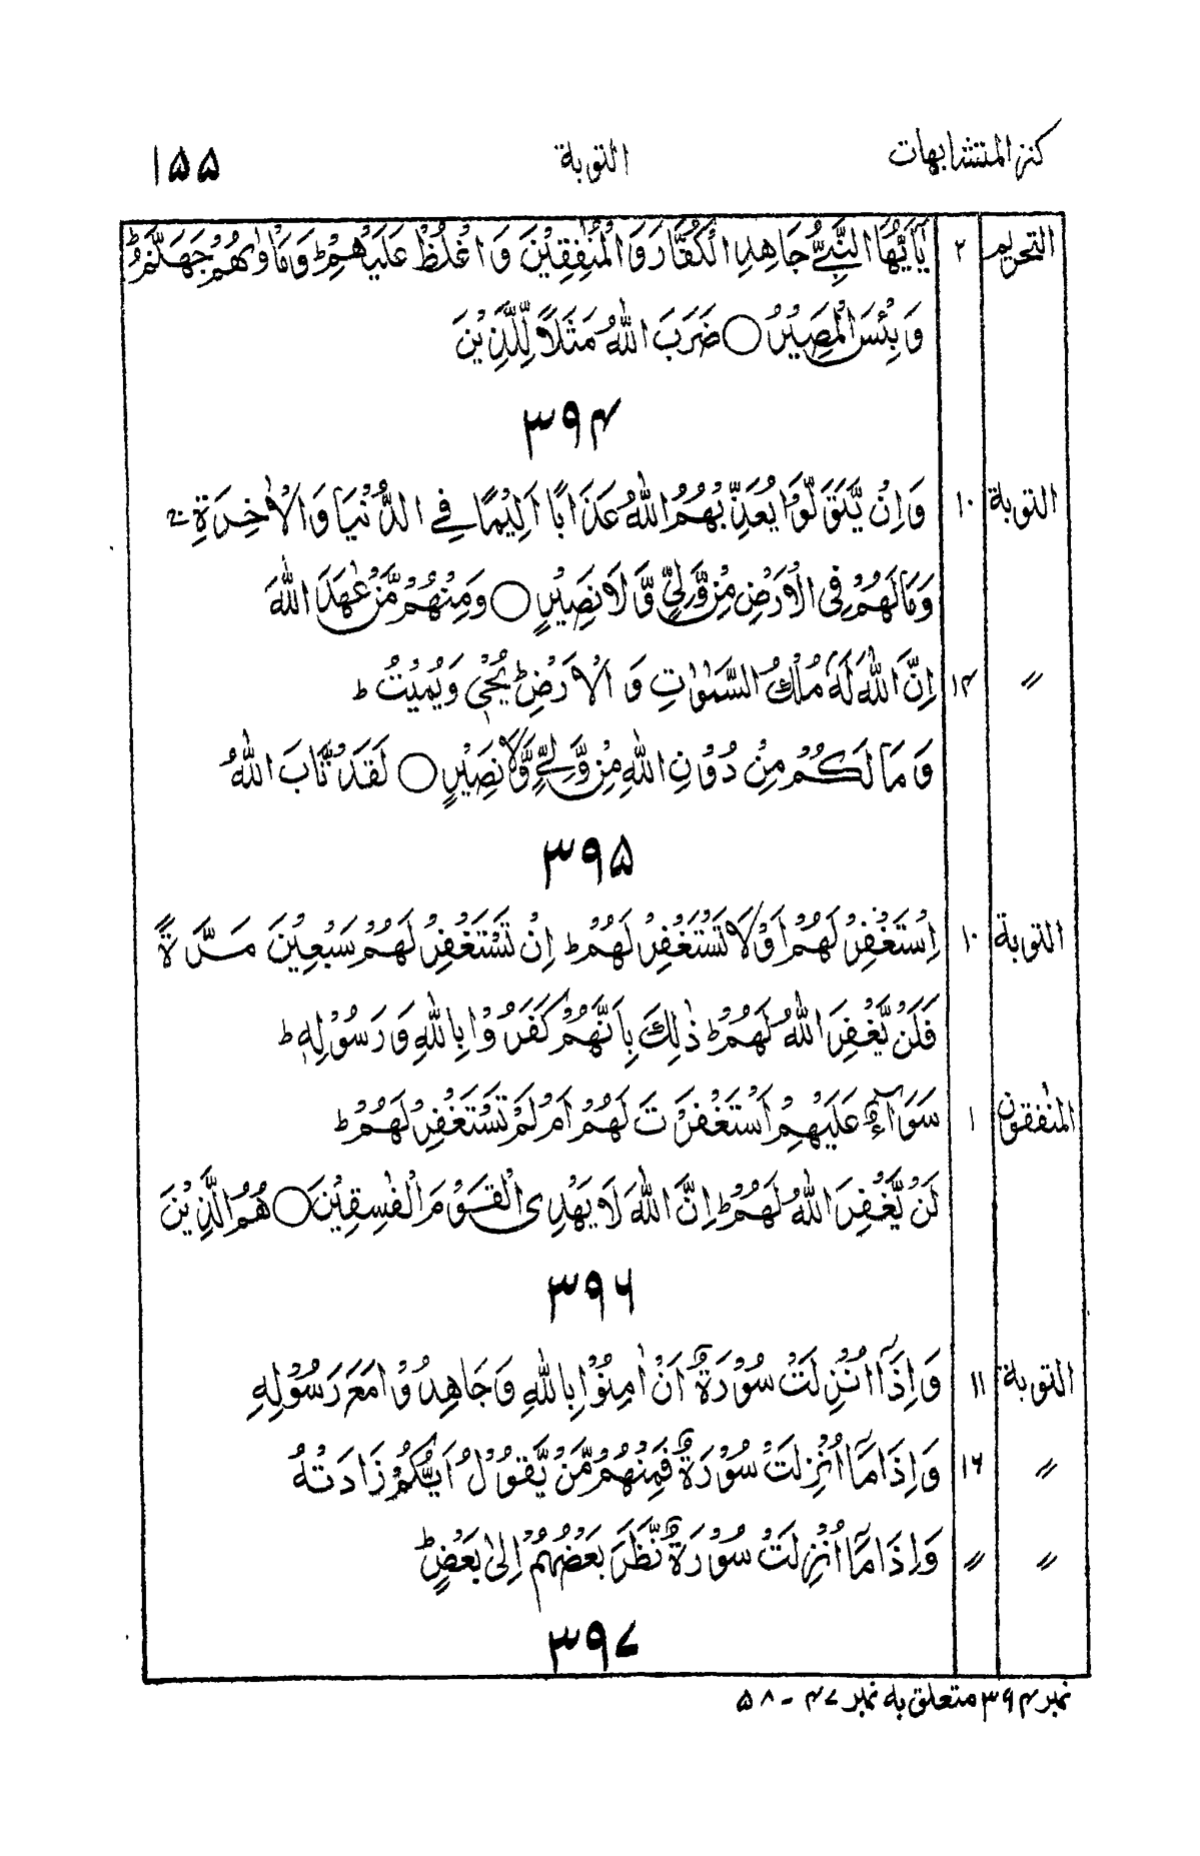 كنز المتشابهات التوبة ۱۵۵
التحريم ۲ يٰٓاَيُّهَا النَّبِيُّ جَاهِدِ الْكُفَّارَ وَالْمُنٰفِقِيْنَ وَاغْلُظْ عَلَيْهِمْ ؕ وَمَاْوٰىهُمْ جَهَنَّمُ ؕ
وَبِئْسَ الْمَصِيْرُ ○ ضَرَبَ اللّٰهُ مَثَلًا لِّلَّذِيْنَ
۳۹۴
التوبة ۱۰ وَاِنْ يَّتَوَلَّوْا يُعَذِّبْهُمُ اللّٰهُ عَذَابًا اَلِيْمًا فِي الدُّنْيَا وَالْاٰخِرَةِ ۚ
وَمَا لَهُمْ فِي الْاَرْضِ مِنْ وَّلِيٍّ وَّلَا نَصِيْرٍ ○ وَمِنْهُمْ مَّنْ عٰهَدَ اللّٰهَ
〃 ۱۴ اِنَّ اللّٰهَ لَهٗ مُلْكُ السَّمٰوٰتِ وَالْاَرْضِ ؕ يُحْيٖ وَيُمِيْتُ ؕ
وَمَا لَكُمْ مِنْ دُوْنِ اللّٰهِ مِنْ وَّلِيٍّ وَّلَا نَصِيْرٍ ○ لَقَدْ تَّابَ اللّٰهُ
۳۹۵
التوبة ۱۰ اِسْتَغْفِرْ لَهُمْ اَوْ لَا تَسْتَغْفِرْ لَهُمْ ؕ اِنْ تَسْتَغْفِرْ لَهُمْ سَبْعِيْنَ مَرَّةً
فَلَنْ يَّغْفِرَ اللّٰهُ لَهُمْ ؕ ذٰلِكَ بِاَنَّهُمْ كَفَرُوْا بِاللّٰهِ وَرَسُوْلِهٖ ؕ
المنٰفقون ۱ سَوَآءٌ عَلَيْهِمْ اَسْتَغْفَرْتَ لَهُمْ اَمْ لَمْ تَسْتَغْفِرْ لَهُمْ ؕ
لَنْ يَّغْفِرَ اللّٰهُ لَهُمْ ؕ اِنَّ اللّٰهَ لَا يَهْدِي الْقَوْمَ الْفٰسِقِيْنَ ○ هُمُ الَّذِيْنَ
۳۹۶
التوبة ۱۱ وَاِذَآ اُنْزِلَتْ سُوْرَةٌ اَنْ اٰمِنُوْا بِاللّٰهِ وَجَاهِدُوْا مَعَ رَسُوْلِهِ
〃 ۱۶ وَاِذَا مَآ اُنْزِلَتْ سُوْرَةٌ فَمِنْهُمْ مَّنْ يَّقُوْلُ اَيُّكُمْ زَادَتْهُ
〃 〃 وَاِذَا مَآ اُنْزِلَتْ سُوْرَةٌ نَّظَرَ بَعْضُهُمْ اِلٰى بَعْضٍ ؕ
۳۹۷
نمبر ۳۹۴ متعلق به نمبر ۴۷ - ۵۸